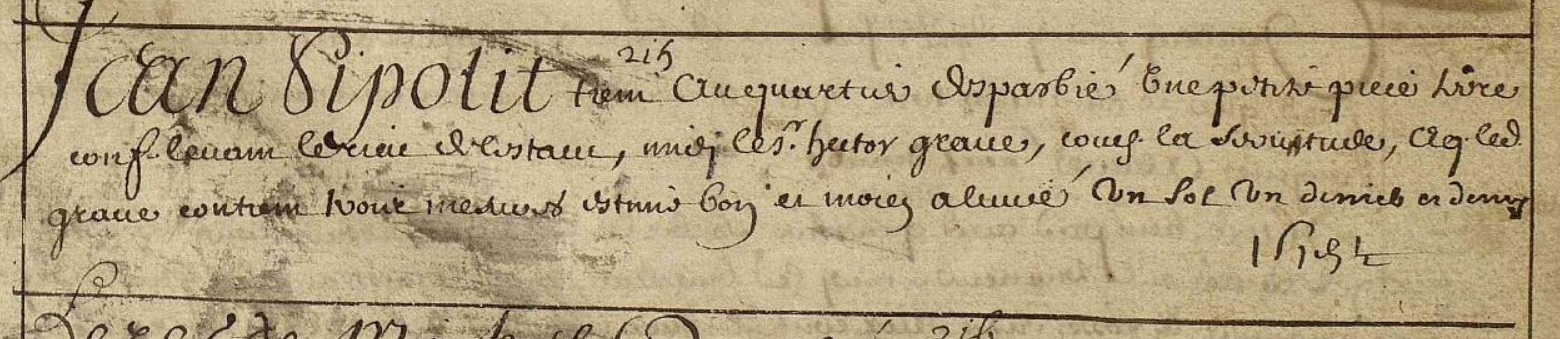 Jean Pipolit tient au quartie desparbié une petite piece terre
conf. levant le de lestanc, midj le sr. hector graue, couch. la servitude, aq. led.
graue contient trois mesures estimé bon et moien aliuvré un sol un denier et demy
1s 1d ½